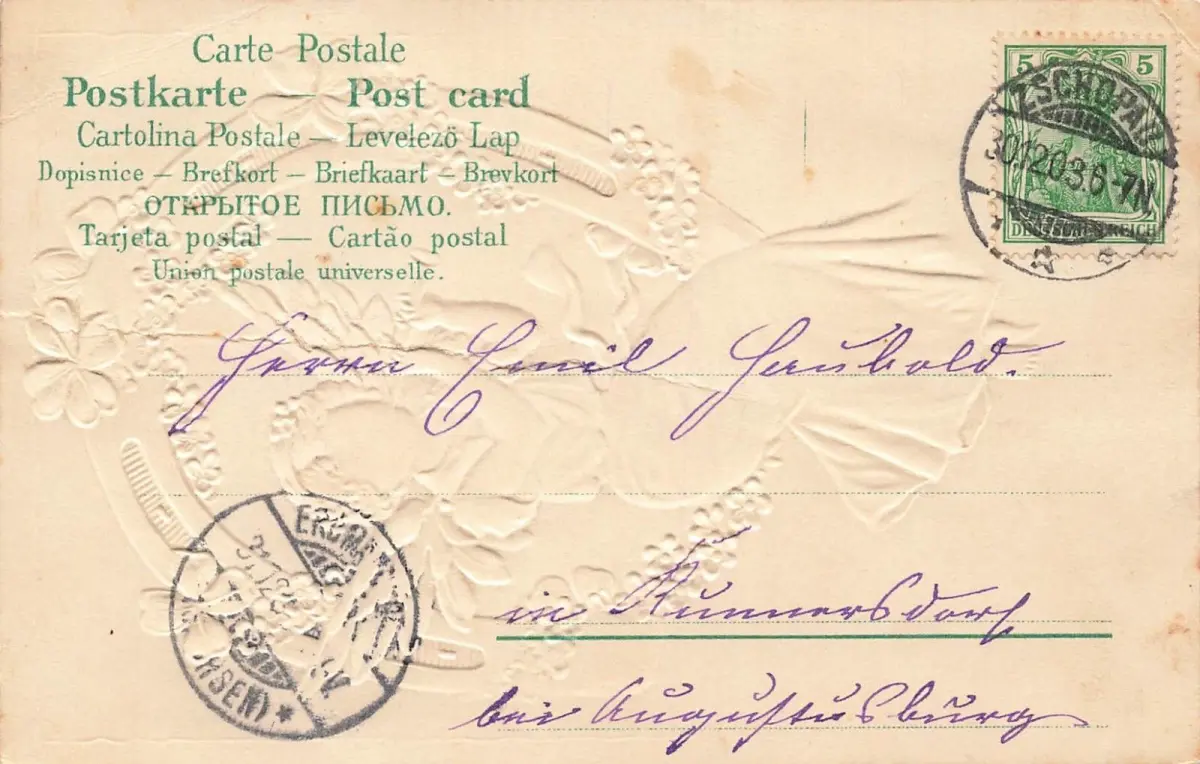 Carte Postale
Postkarte — Post card
Cartolina Postale — Levelezö Lap
Dopisnice — Brefkort — Briefkaart — Brevkort
ОТКРЫТОЕ ПИСЬМО.
Tarjeta postal — Cartão postal
Union postale universelle.
5 5
ZSCHOPAU
30.12.03.6-7N.
DEUTSCHES REICH
Herrn Emil Haubold.
in Kunnersdorf
bei Augustusburg